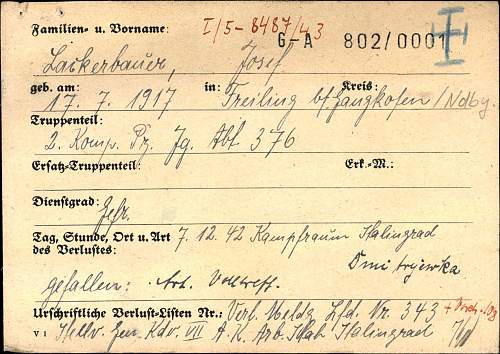 I/5-8487/43
G-A 802/0001
Familien- u. Vorname:
Lackerbauer, Josef
geb. am: in: Kreis:
17. 7. 1917 Freiling bf. Gangkofen / Ndby.
Truppenteil:
2. Komp. Pz. Jg. Abt 376
Ersatz-Truppenteil: Erk.-M.:
Dienstgrad:
Gefr.
Tag, Stunde, Ort u. Art 7. 12. 42 Kampfraum Stalingrad
des Verlustes: Dmitryewka
gefallen: Art. Volltreff.
Urschriftliche Verlust-Listen Nr.: Verl. Meldg Lfd. Nr. 343
V 1 Stellv. Gen. Kdo. VII A. K. Arb. Stab Stalingrad